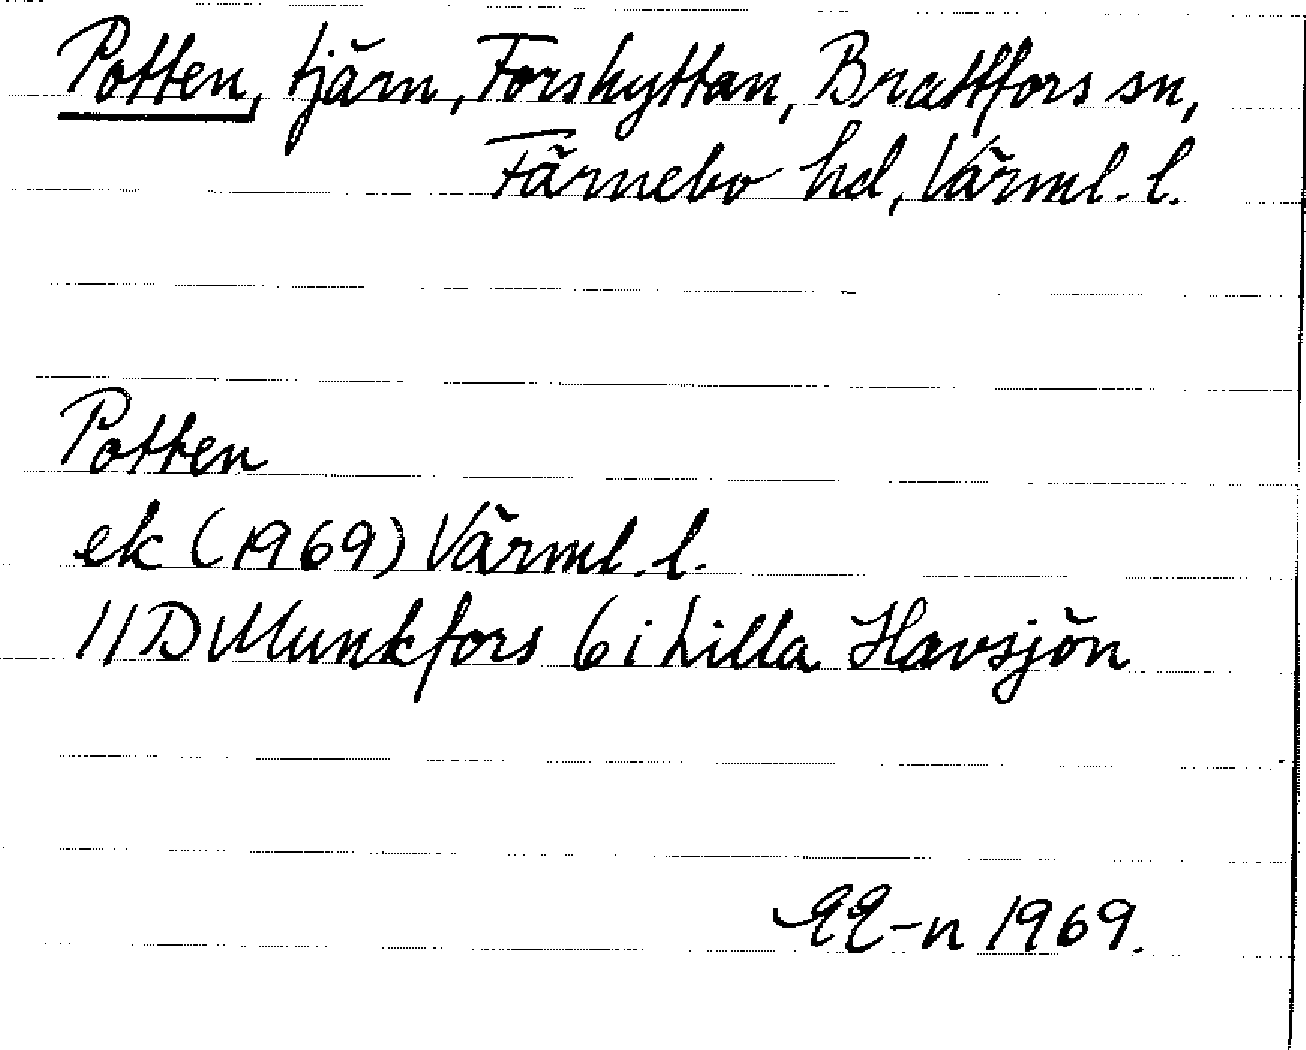 Potten, tjärn, Forshyttan, Brattfors sn,
Färnebo hd, Värml. l.
Potten
ek (1969) Värml. l.
11D Munkfors 6i Lilla Havsjön
EE-n 1969.